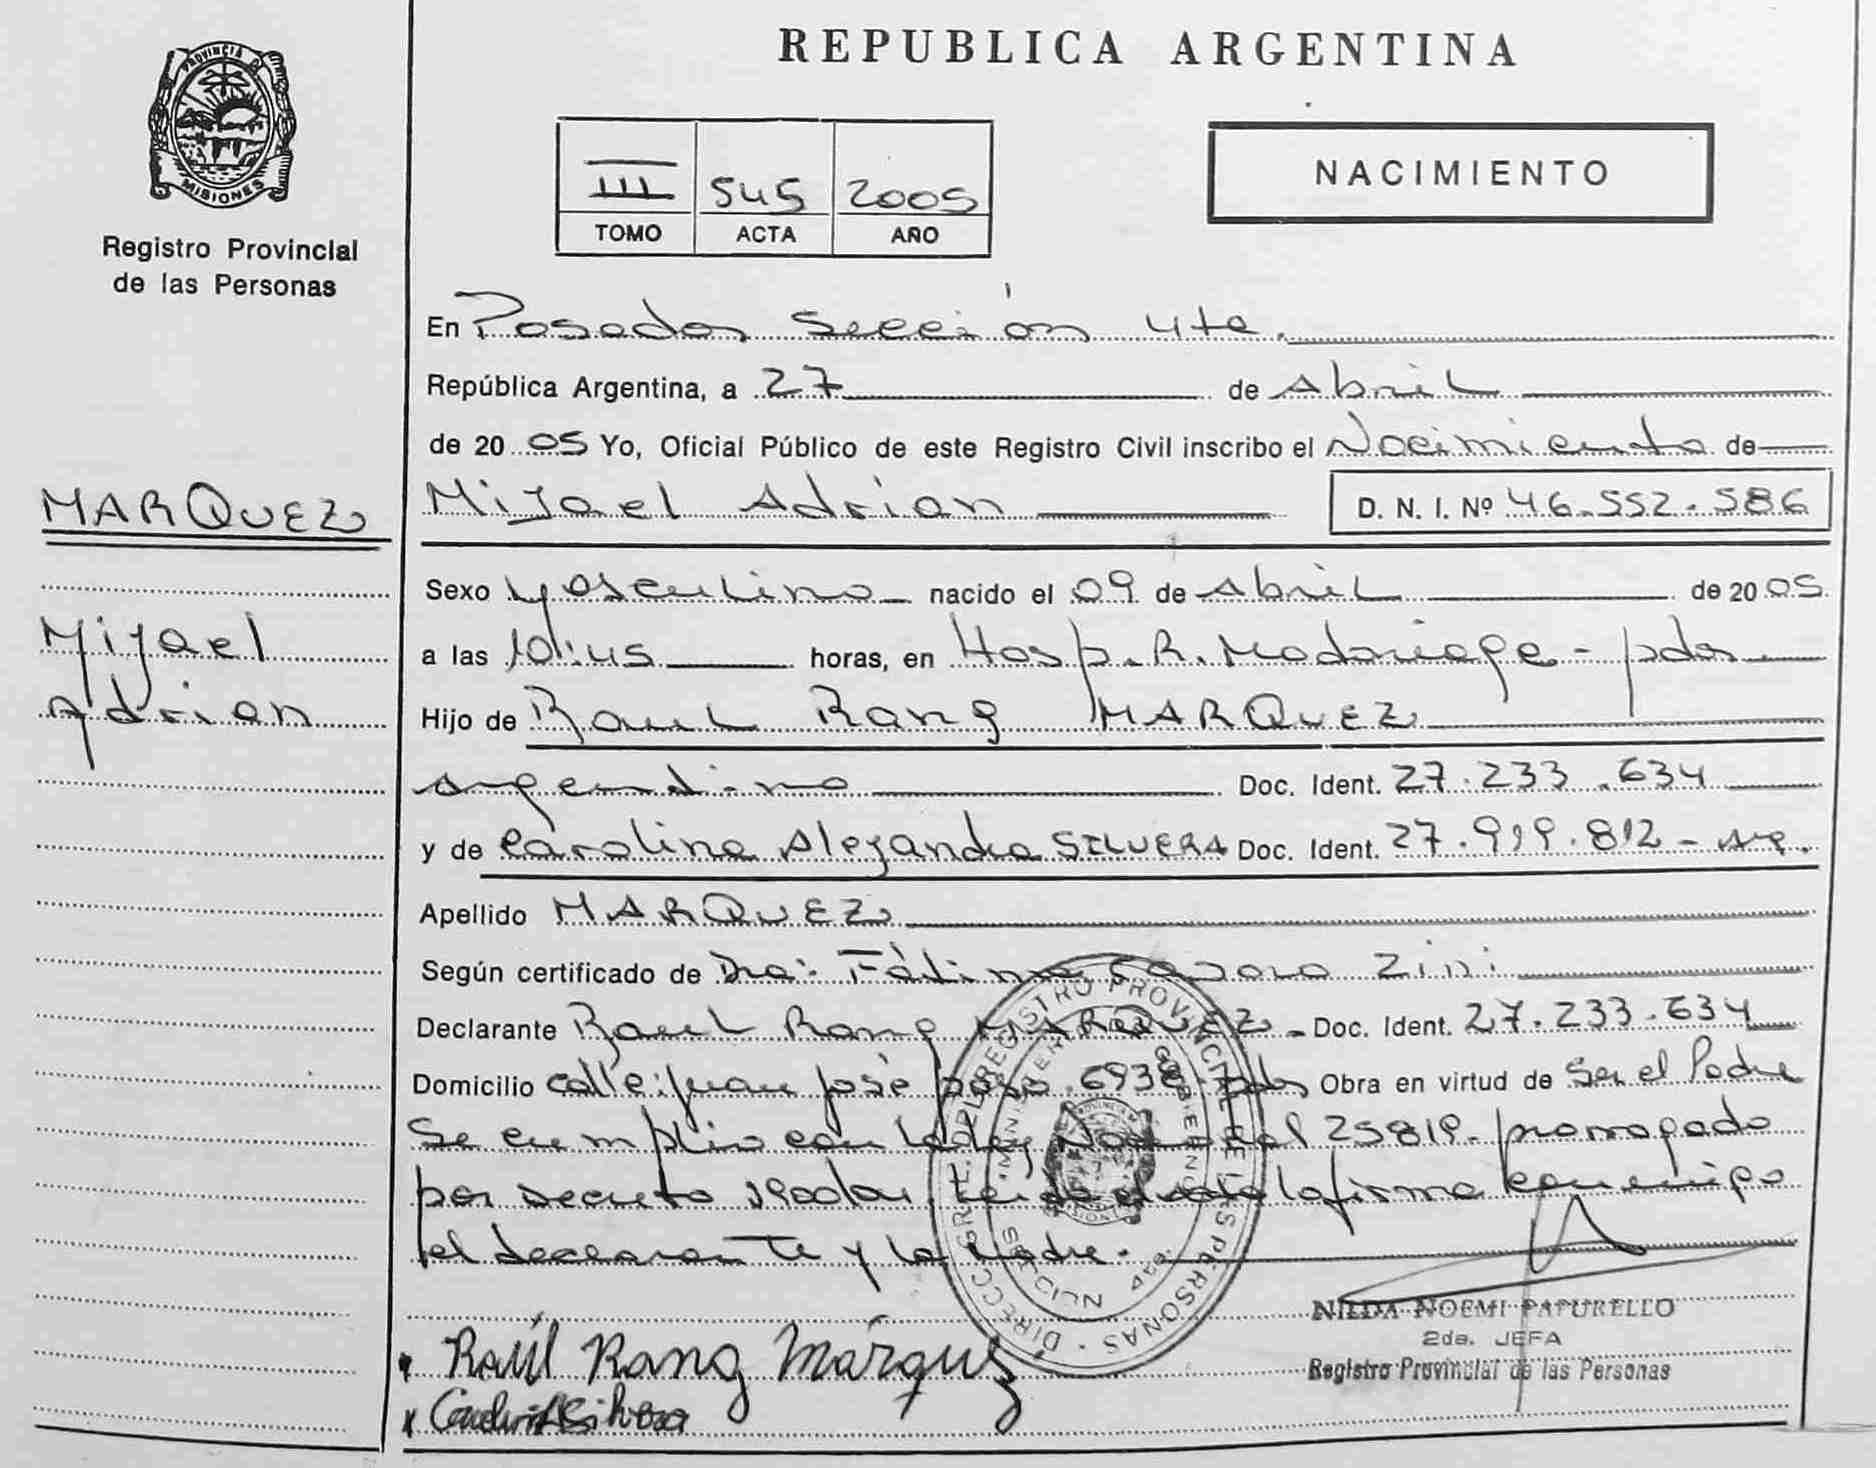 PROVINCIA DE
MISIONES
Registro Provincial
de las Personas
REPUBLICA ARGENTINA
III 545 2005
TOMO ACTA AÑO
NACIMIENTO
En Posadas Sección 4ta.
República Argentina, a 27 de Abril
de 20 05 Yo, Oficial Público de este Registro Civil inscribo el Nacimiento de
MARQUEZ
Mijael Adrian D. N. I. Nº 46.552.586
Sexo Masculino nacido el 09 de Abril de 20 05
Mijael
Adrian
a las 10:45 horas, en Hosp. R. Madariaga - pdas
Hijo de Raul Rang MARQUEZ
argentino Doc. Ident. 27.233.634
y de Carolina Alejandra SILVERA Doc. Ident. 27.919.812 - arg.
Apellido MARQUEZ
Según certificado de Dra: Fátima Zini
Declarante Raul Rang MARQUEZ - Doc. Ident. 27.233.634
Domicilio calle: Juan José Paso 6938 pdas Obra en virtud de Ser el Padre
Se cumplio con la Ley Nacional 25819. prorrogado
por Decreto Leida el acta la firma conmigo
el declarante y la Madre.
DIRECC. GRAL. DEL REGISTRO PROVINCIAL DE LAS PERSONAS
MINISTERIO DE GOBIERNO
NILDA NOEMI PATURELLO
2da. JEFA
Registro Provincial de las Personas
Raúl Rang Márquez